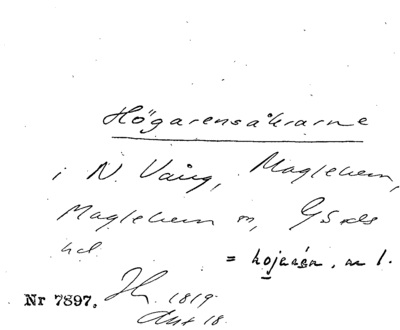 Högarensåkrarne
i N. Vång, Maglehem,
Maglehem sn, Gärds
hd.
= hojaran, m 1.
Nr 7897. 1819
Akt 18.